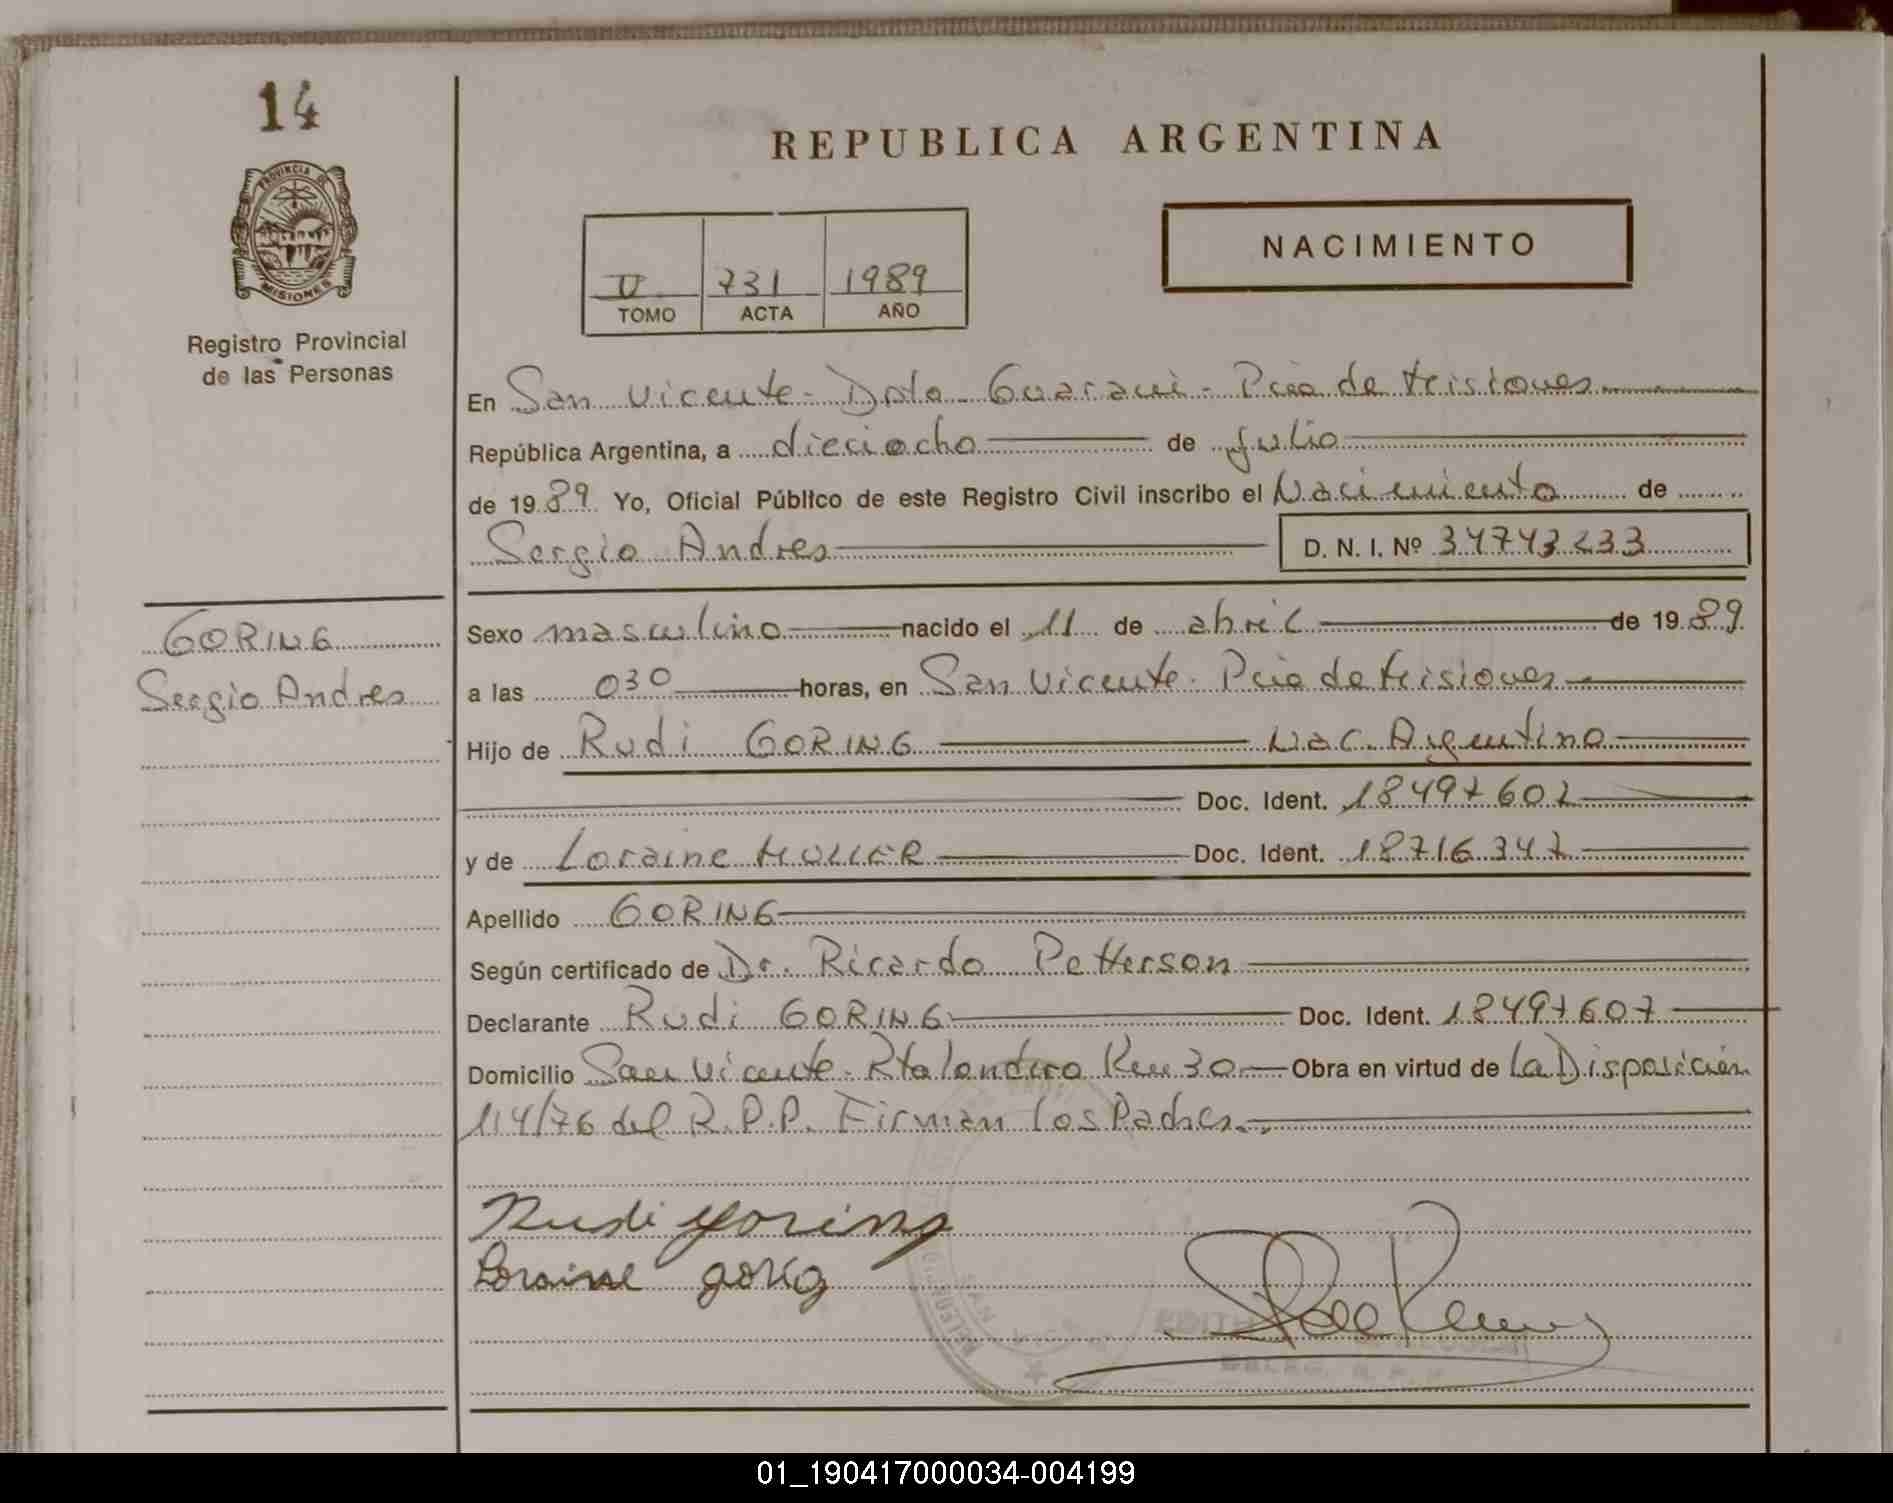 14
REPUBLICA ARGENTINA
PROVINCIA DE
MISIONES
Registro Provincial
de las Personas
NACIMIENTO
II 731 1989
TOMO ACTA AÑO
En San Vicente - Dpto Guarani - Pcia de Misiones
República Argentina, a dieciocho de Julio
de 1989 Yo, Oficial Público de este Registro Civil inscribo el Nacimiento de
Sergio Andres D. N. I. Nº 34743233
GORING
Sergio Andres
Sexo masculino nacido el 11 de abril de 1989
a las 030 horas, en San Vicente - Pcia de Misiones
Hijo de Rudi GORING Nac. Argentino
Doc. Ident. 18497602
y de Loraine MULLER Doc. Ident. 18716347
Apellido GORING
Según certificado de Dr. Ricardo Petterson
Declarante Rudi GORING Doc. Ident. 18497607
Domicilio San Vicente - Rta Km 30 Obra en virtud de La Disposición
114/76 del R.P.P. Firman los Padres.
Rudi Goring
Loraine goring
SAN VICENTE
EDITH
DELEG. R. P. P.
01_190417000034-004199